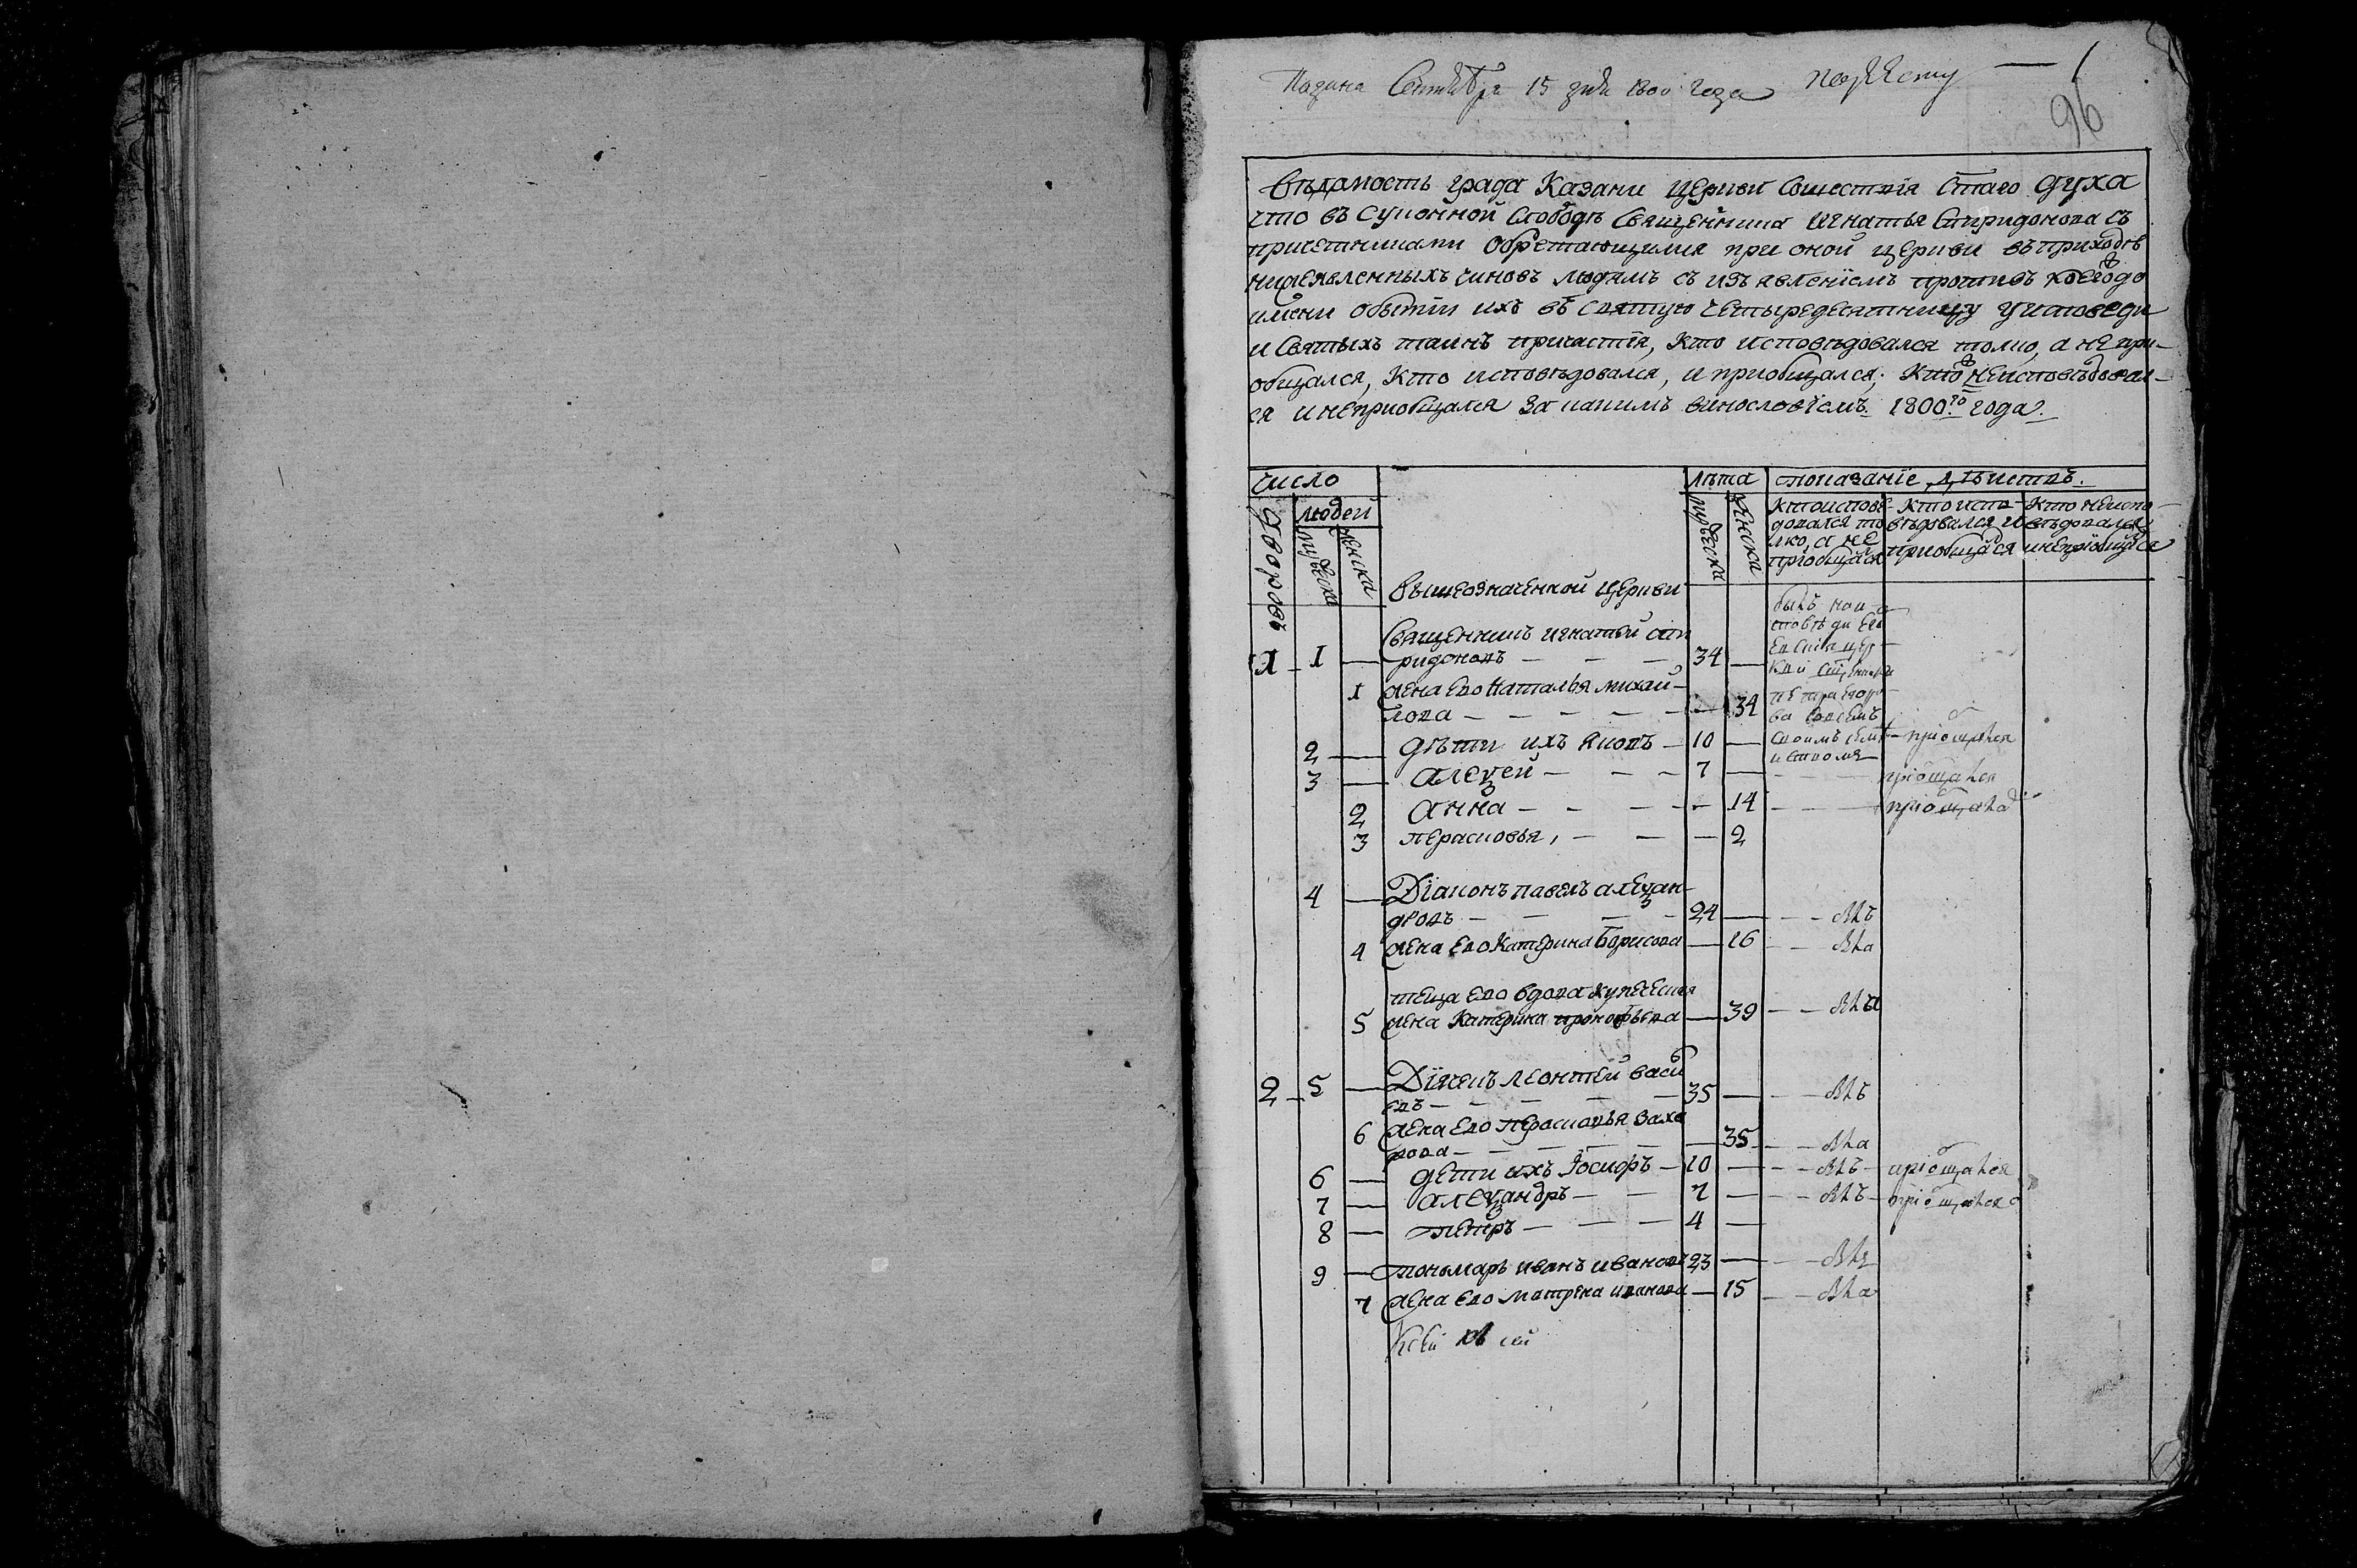 Подана Сентября 15 дня 1800 года
1
96
Вѣдомость града Казани церкви Сошествія Стаго Духа
что въ Суконной Слободѣ Священника Игнатья Спиридонова съ
причетниками Обретающимся при оной церкви въ приходѣ
нижеявленныхъ чиновъ людямъ съ изъявленіемъ противъ коегождо
имени о бытіи ихъ въ Святую четыредесятницу у исповеди
и Святыхъ таинъ причастія, Кто исповѣдовался толко, а не при-
общался, Кто исповѣдовался, и приобщался; Кто неисповѣдовал-
ся и неприобщался За какимъ винословіемъ. 1800го года.
Число
лѣта
показаніе дѣйствъ.
Дворовъ
людей
мужеска
женска
мужеска
женска
Кто испове-
довался то
лко, а не
пріобщался
Кто испо-
вѣдовался и
приобщался
Кто неиспо-
вѣдовался
и непріобщался
Вышеозначенной Церкви
Священникъ игнатей спи
1 1 — ридоновъ — — — 34 —
1 жена Ево Наталья михай-
лова — — — — — — 34
2 — дѣти ихъ яковъ — 10 — пріобщался
3 — алеѯей — — — 7 — пріобщался
2 анна — — — — 14 — пріобщалась
3 перасковья, — — — 2
4 — Діаконъ павелъ алеѯан-
дровъ — — — — 24 — — — былъ
4 жена Ево Катерина Борисова — 16 — — была
теща Ево вдова купеческая
5 жена Катерина прокофьева — 39 — — была
2 5 — Діячекъ леонтей васи
евъ — — — — — 35 — — — былъ
6 жена Ево перасковья Заха
рова — — — — — — 35 — — была
6 — дети ихъ Іосифъ — 10 — — — былъ — пріобщался
7 — алеѯандръ — — 7 — — — былъ — пріобщался
8 — петръ — — — 4 —
9 — пономарь иванъ ивановъ 23 — — — былъ
7 жена Ево матрена иванова — 15 — — была